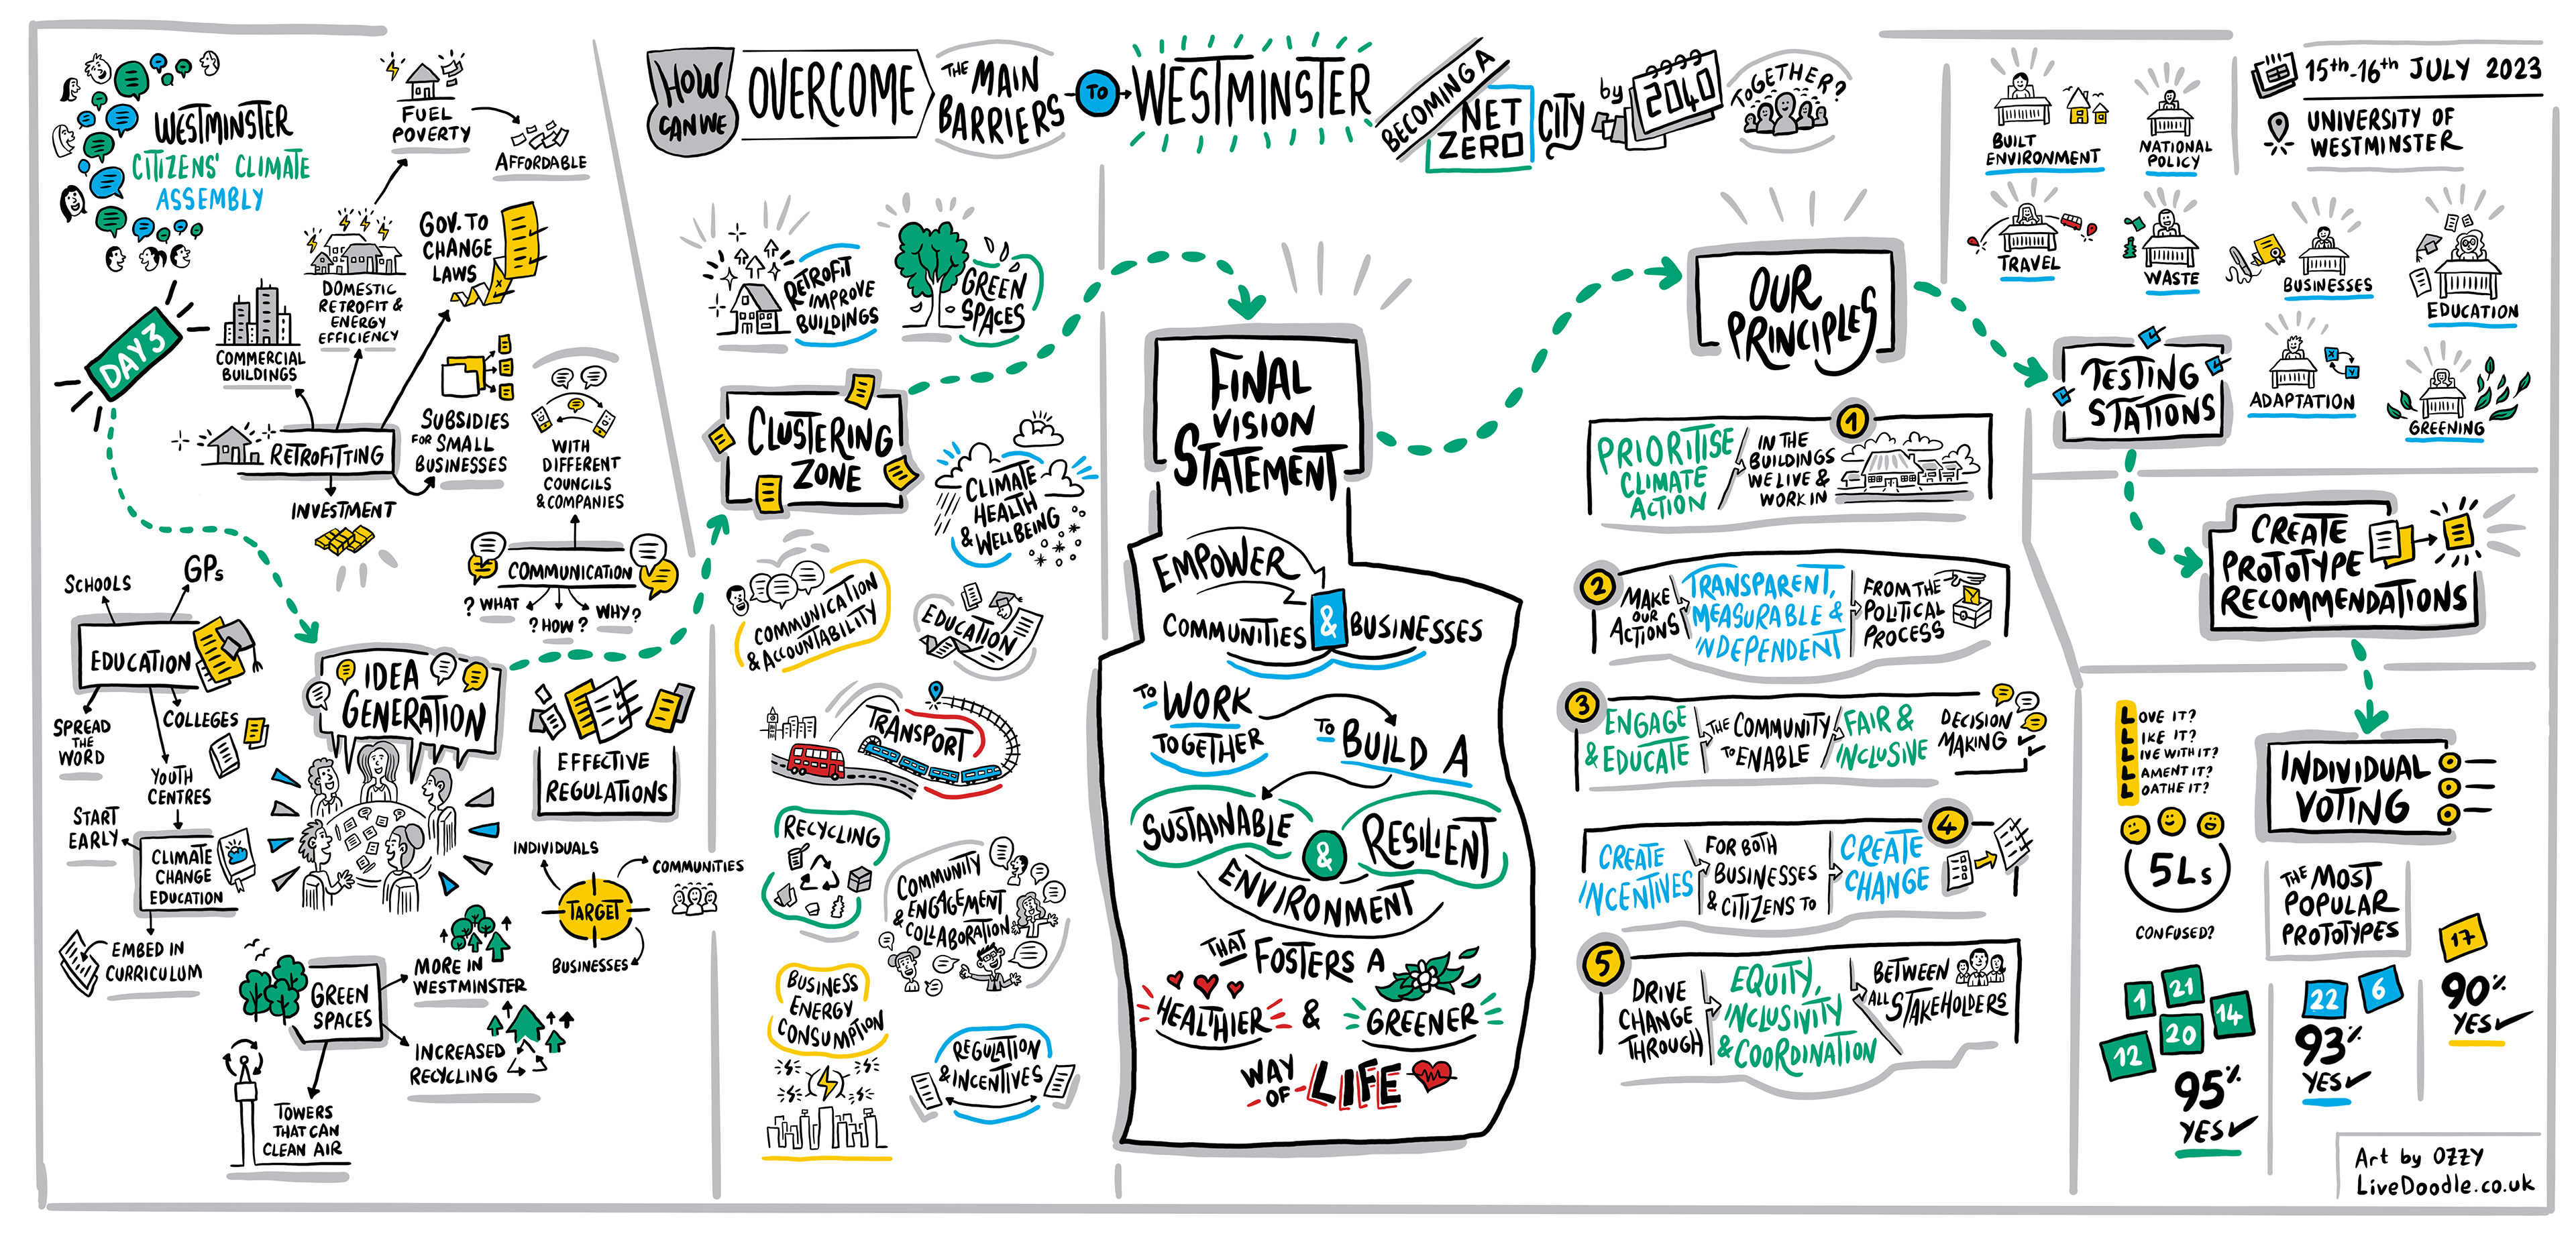 WESTMINSTER
CITIZENS' CLIMATE
ASSEMBLY
DAY 3
HOW
CAN WE
OVERCOME
THE MAIN
BARRIERS
TO
WESTMINSTER
BECOMING A
NET
ZERO
CITY
by
2040
TOGETHER?
15th-16th JULY 2023
UNIVERSITY OF
WESTMINSTER
FUEL
POVERTY
AFFORDABLE
DOMESTIC
RETROFIT &
ENERGY
EFFICIENCY
GOV. TO
CHANGE
LAWS
COMMERCIAL
BUILDINGS
SUBSIDIES
FOR SMALL
BUSINESSES
RETROFITTING
INVESTMENT
WITH
DIFFERENT
COUNCILS
& COMPANIES
COMMUNICATION
? WHAT
? HOW?
WHY?
SCHOOLS
GPs
EDUCATION
SPREAD
THE
WORD
COLLEGES
YOUTH
CENTRES
START
EARLY
CLIMATE
CHANGE
EDUCATION
EMBED IN
CURRICULUM
IDEA
GENERATION
EFFECTIVE
REGULATIONS
INDIVIDUALS
COMMUNITIES
TARGET
BUSINESSES
GREEN
SPACES
MORE IN
WESTMINSTER
INCREASED
RECYCLING
TOWERS
THAT CAN
CLEAN AIR
RETROFIT
IMPROVE
BUILDINGS
GREEN
SPACES
CLUSTERING
ZONE
CLIMATE
HEALTH
& WELLBEING
COMMUNICATION
& ACCOUNTABILITY
EDUCATION
TRANSPORT
RECYCLING
COMMUNITY
ENGAGEMENT
& COLLABORATION
BUSINESS
ENERGY
CONSUMPTION
REGULATION
& INCENTIVES
FINAL
VISION
STATEMENT
EMPOWER
COMMUNITIES & BUSINESSES
TO WORK
TOGETHER
TO BUILD A
SUSTAINABLE & RESILIENT
ENVIRONMENT
THAT FOSTERS A
HEALTHIER & GREENER
WAY
OF LIFE
OUR
PRINCIPLES
1
PRIORITISE
CLIMATE
ACTION
IN THE
BUILDINGS
WE LIVE &
WORK IN
2
MAKE
OUR
ACTIONS
TRANSPARENT,
MEASURABLE &
INDEPENDENT
FROM THE
POLITICAL
PROCESS
3
ENGAGE
& EDUCATE
THE COMMUNITY
TO ENABLE
FAIR &
INCLUSIVE
DECISION
MAKING
4
CREATE
INCENTIVES
FOR BOTH
BUSINESSES
& CITIZENS TO
CREATE
CHANGE
5
DRIVE
CHANGE
THROUGH
EQUITY,
INCLUSIVITY
& COORDINATION
BETWEEN
ALL STAKEHOLDERS
BUILT
ENVIRONMENT
NATIONAL
POLICY
TRAVEL
WASTE
BUSINESSES
EDUCATION
ADAPTATION
X
Y
GREENING
TESTING
STATIONS
CREATE
PROTOTYPE
RECOMMENDATIONS
LOVE IT?
LIKE IT?
LIVE WITH IT?
LAMENT IT?
LOATHE IT?
5Ls
CONFUSED?
INDIVIDUAL
VOTING
THE MOST
POPULAR
PROTOTYPES
1 21 14
12 20
95%
YES
22 6
93%
YES
17
90%
YES
Art by OZZY
LiveDoodle.co.uk